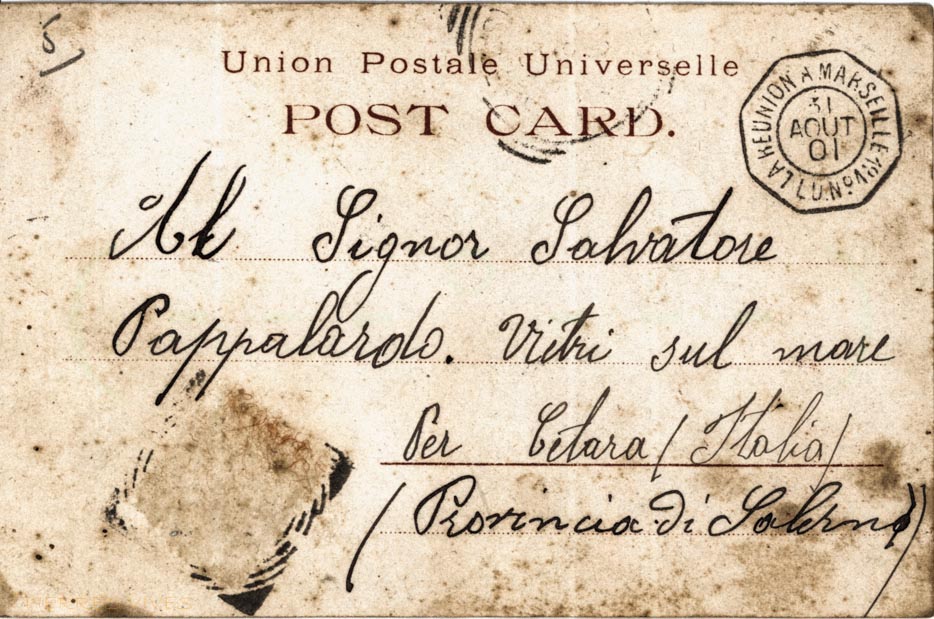 5
Union Postale Universelle
POST CARD.
LA REUNION A MARSEILLE
31
AOUT
01
Al Signor Salvatore
Pappalardo. Vitri sul mare
Per Cetara (Italia)
(Provincia di Salerno)